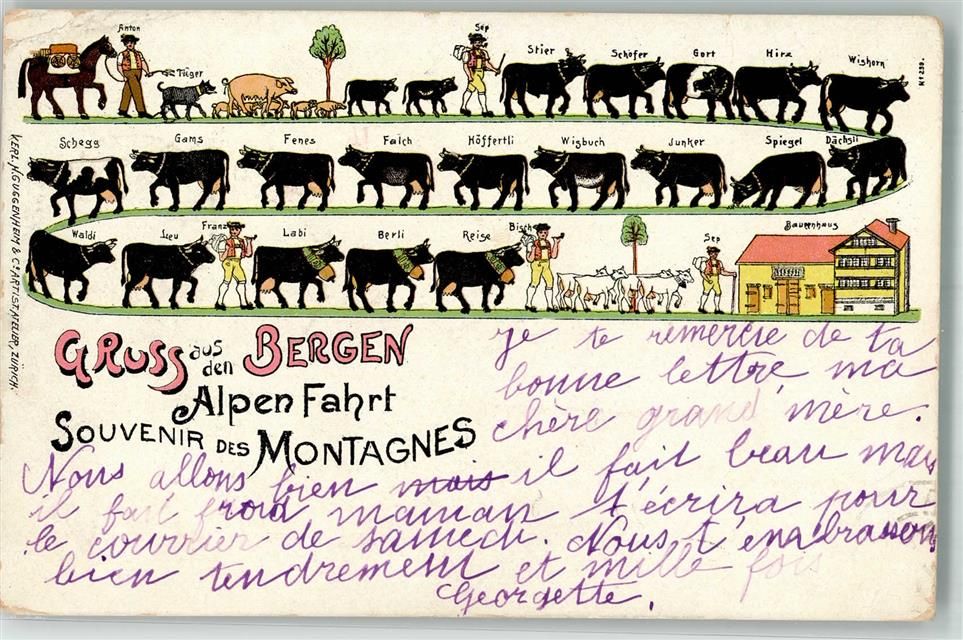 Anton
Sep
Tiger
Stier
Schöfer
Gort
Hirz
Wishorn
Nº 239.
Schegg
Gams
Fenes
Falch
Höffertli
Wisbuch
Junker
Spiegel
Dächsli
Waldi
Leu
Franz
Labi
Berli
Reise
Bisch
Sep
Bauernhaus
VERL. J. GUGGENHEIM & Cº ARTIST. ATELIER, ZÜRICH.
GRUSS aus den BERGEN
Alpen Fahrt
SOUVENIR DES MONTAGNES
je te remercie de ta
bonne lettre, ma
chère grand' mère.
Nous allons bien mais il fait beau mais
il fait froid maman t'écrira pour
le courrier de samedi. Nous t'enabrassons
bien tendrement et mille fois
Georgette.